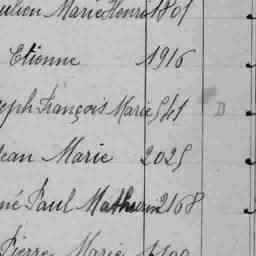 ulien Marie Henri 1801
Etienne 1916
seph François Marie 541 D
Jean Marie 2025
né Paul Mathurin 2168
Pierre Marie